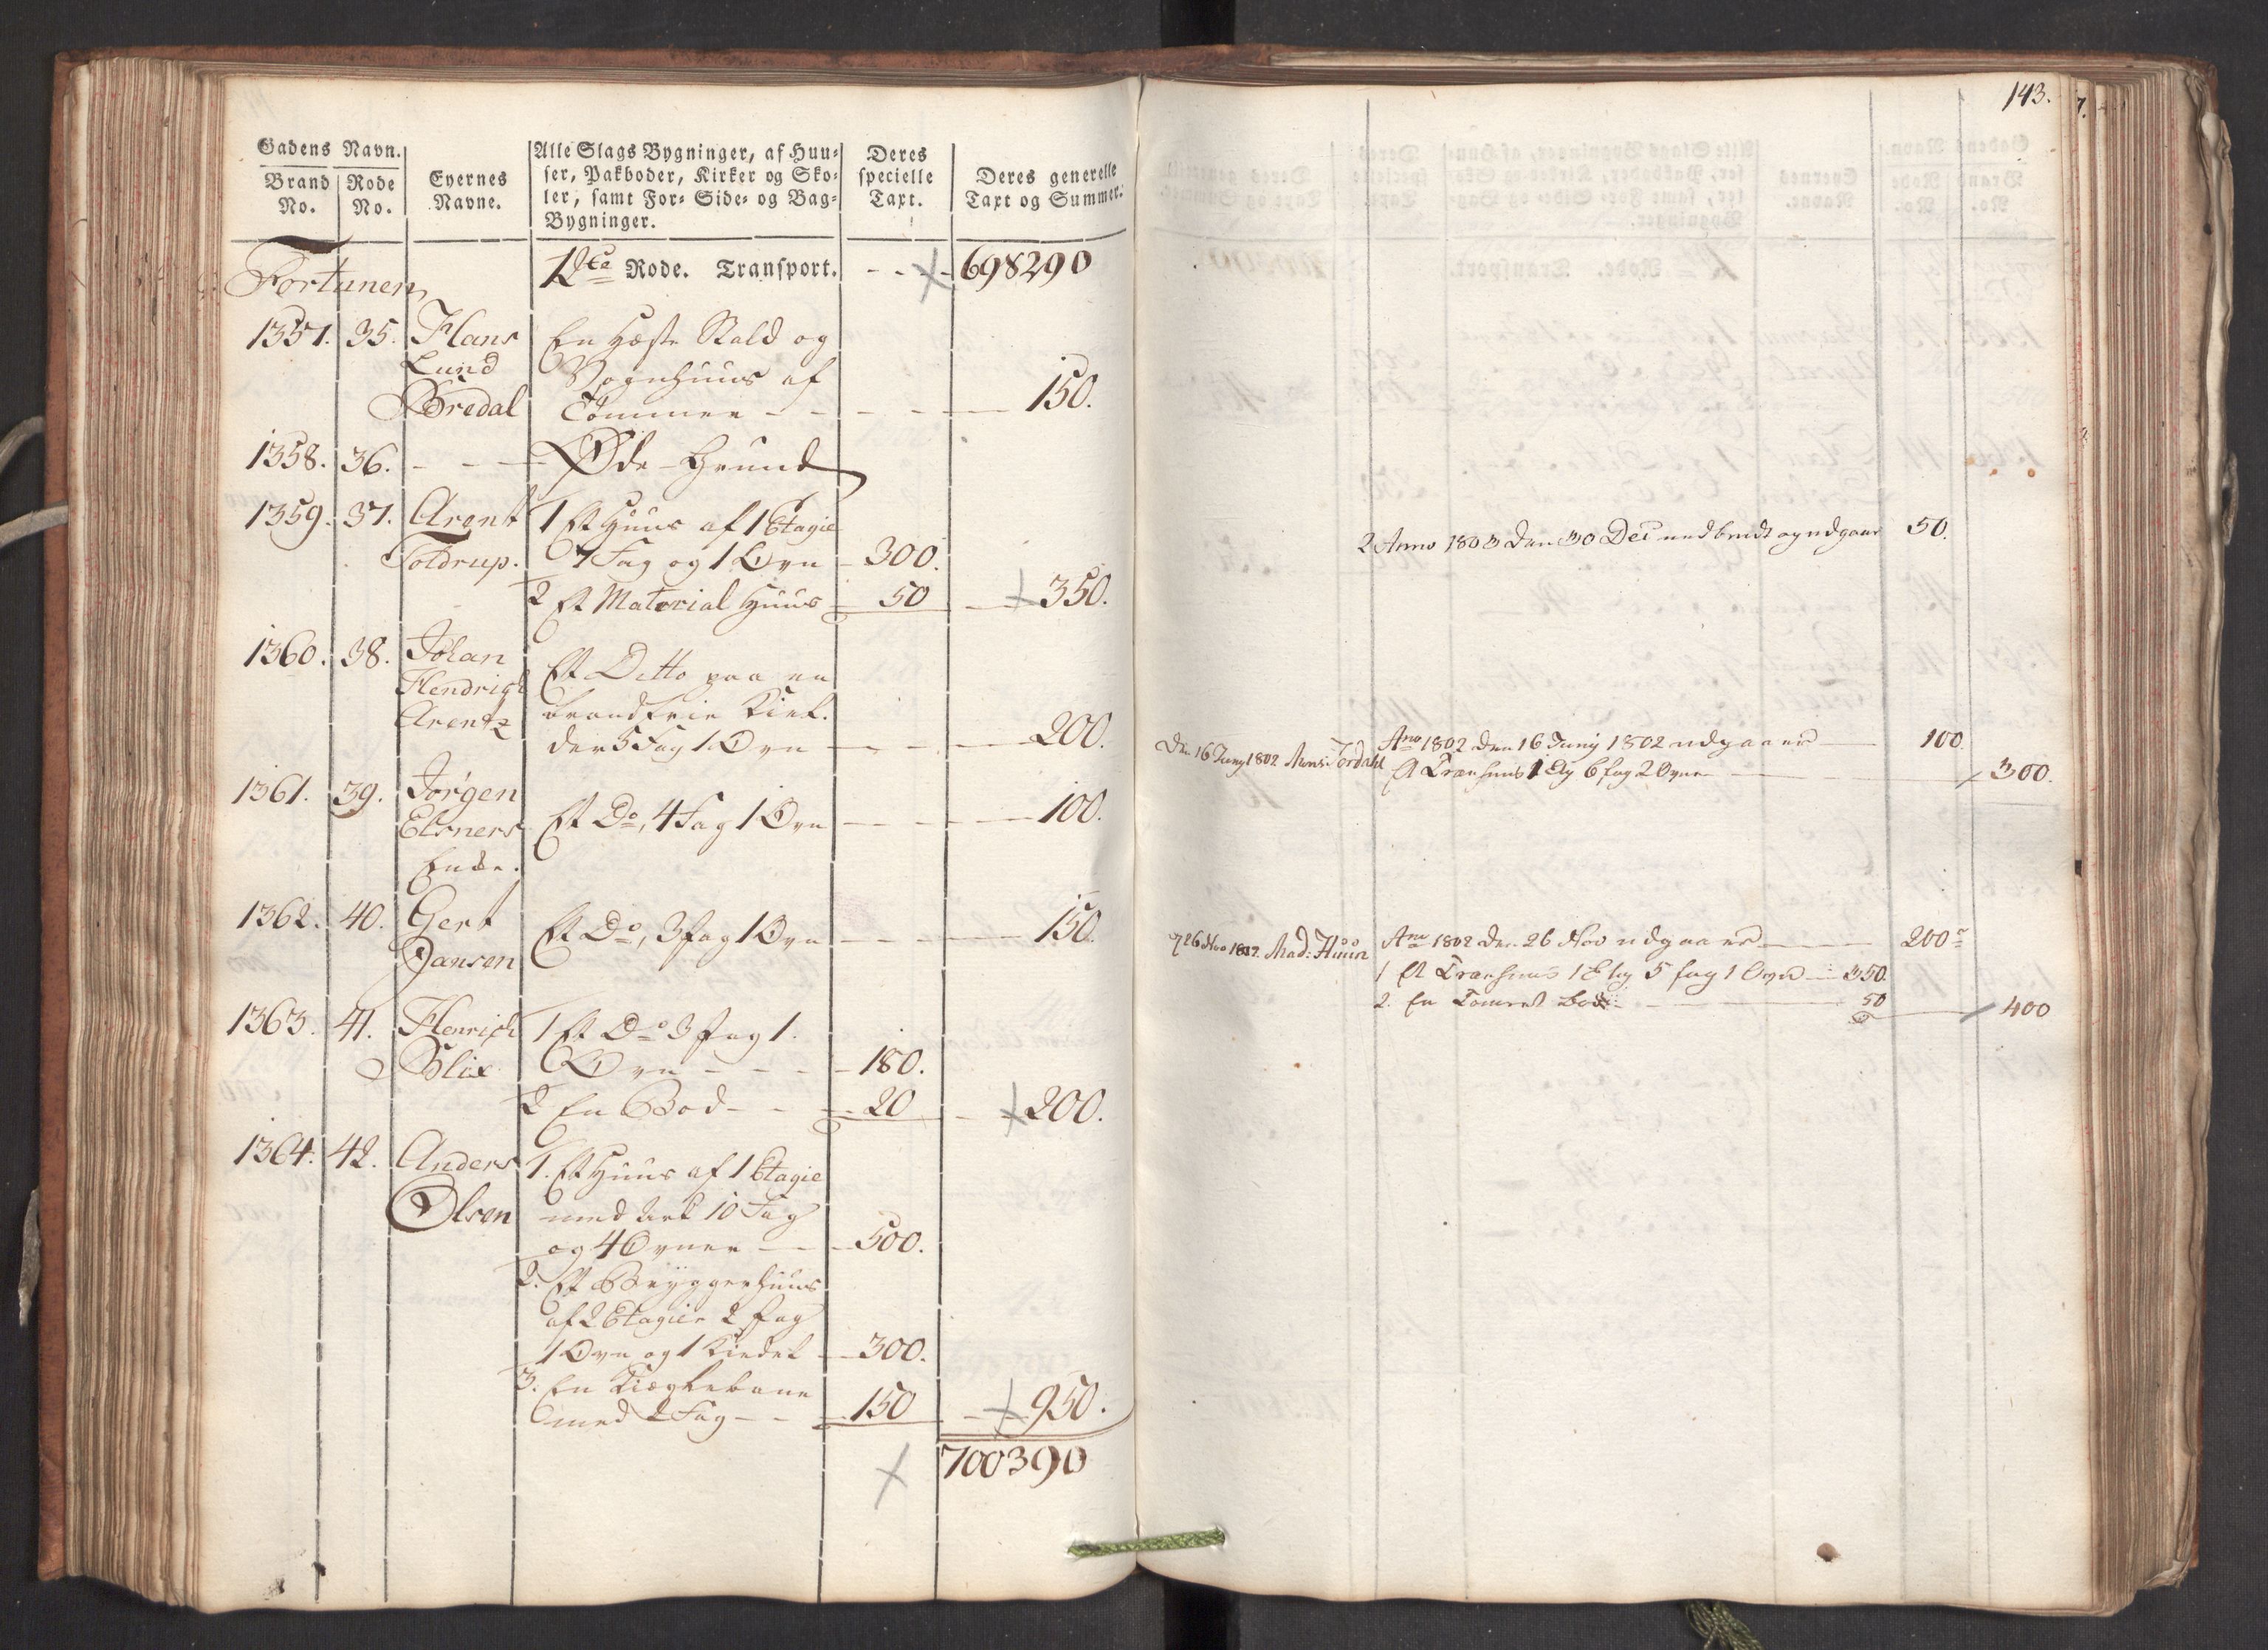 Gadens Navn.
Brand No. Rode No. Eyernes Navne. Alle Slags Bygninger, af Huu-
ser, Pakboder, Kirker og Sko-
ler, samt For- Side- og Bag-
Bygninger. Deres specielle Taxt. Deres generelle Taxt og Summer.
Fortunen 12te Rode. Transport. - - - 698290
1357. 35. Hans En Heste Stald og
Lund Vognhuus af
Bredal Tømmer - - - - 150.
1358. 36. - - - Øde-Grund
1359. 37. Arent 1 Et Huus af 1 Etagie
Toldrup. 7 Fag og 1 Ovn - 300.
2 Et Material Huus - 50 - 350.
1360. 38. Johan Et Ditto paa en
Hendrich brandfrie Kiel-
Arentz der 5 Fag 1 Ovn - - - 200.
1361. 39. Jørgen
Elsners Et Do, 4 Fag 1 Ovn - - - 100.
Enke.
1362. 40. Gert Et Do, 3 fag 1 Ovn - - - 150.
Jansen
1363. 41. Henrich 1 Et Do 3 fag 1.
Blix Ovn - - - 180.
2 En Bod - - 20 - 200.
1364. 42. Anders 1. Et Huus af 1 Etagie
Olsen med Ark 10 Fag
og 4 Ovner - - 500.
2. Et Bryggerhuus
af 2 Etagier 2 fag
1 Ovn og 1 Kiedel - 300.
3. En Kieglebane
med 2 Fag - - 150 - 950.
700390
143.
2 Anno 1803 den 30 Dec nedbrudt og udgaar 50.
Ano 1802 den 16 Juny 1802 udgaaer - 100.
Den 16 Juny 1802 Mons: Tordahl Et Træehuus 1 Etg 6 fag 2 Ovne - 300.
d 26 Nov 1802. Mad: Huun Ano 1802 den 26 Nov udgaaer - 200
1 Et Træehuus 1 Etg 5 fag 1 Ovn - 350.
2. En Tømret Bod - 50 - 400